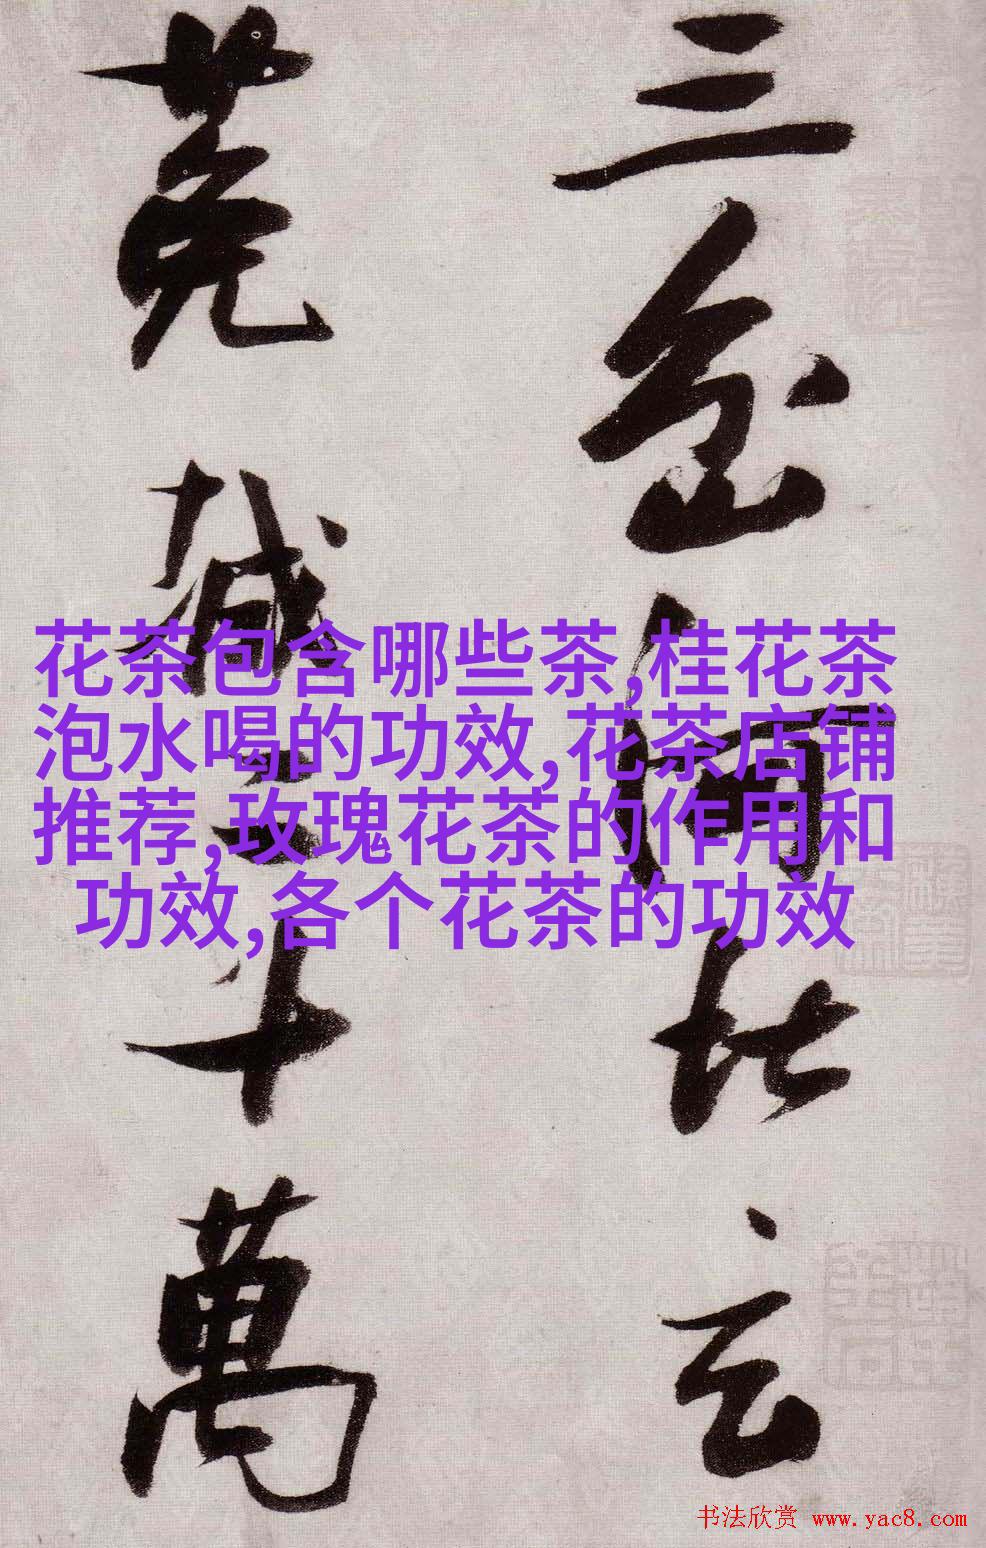 三比云
減二十萬
花茶包含哪些茶,桂花茶
泡水喝的功效,花茶店铺
推荐,玫瑰花茶的作用和
功效,各个花茶的功效
书法欣赏 www.yac8.com